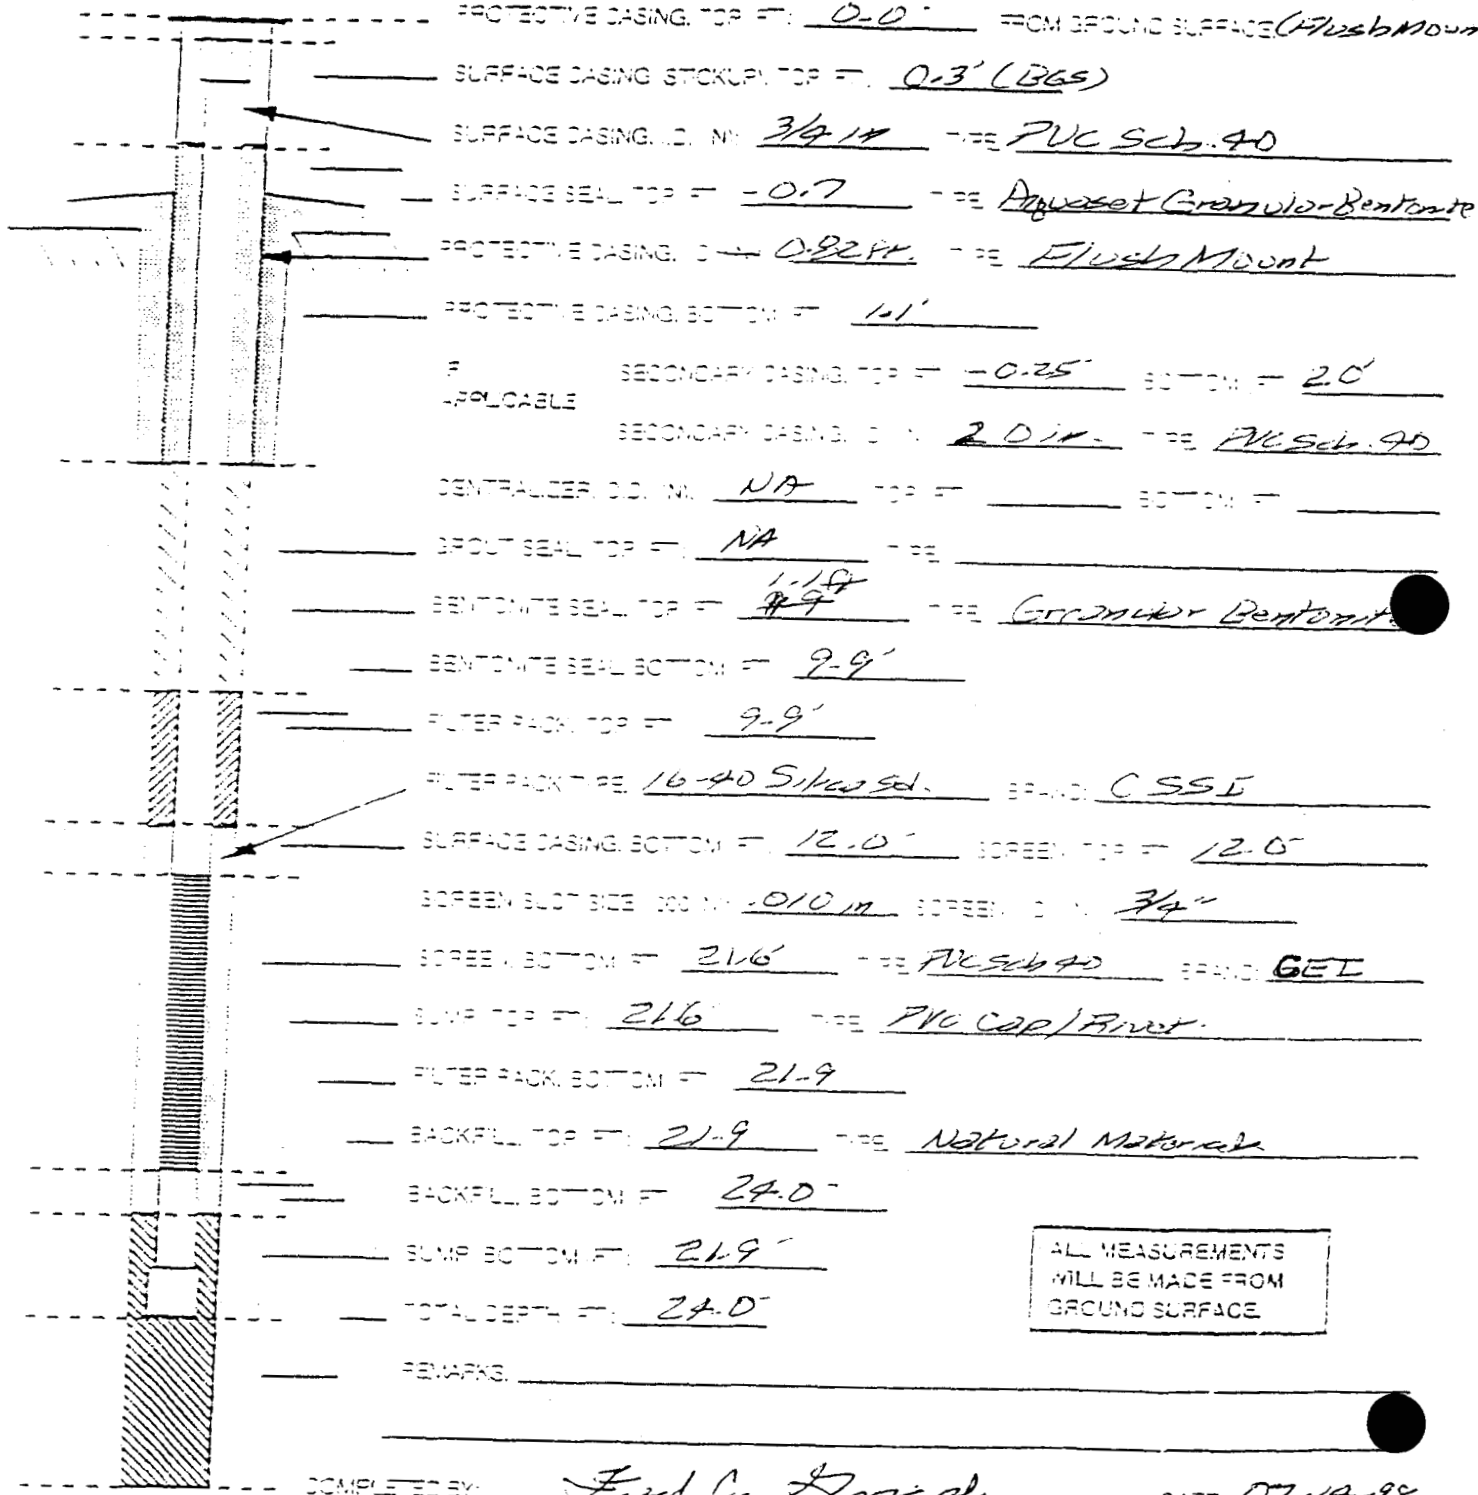 PROTECTIVE CASING, TOP (FT) 0.0' FROM GROUND SURFACE (Flush Moun
SURFACE CASING STICKUP, TOP FT. 0.3' (BGS)
SURFACE CASING, I.D. (IN) 3/4 in TYPE PVC Sch. 40
SURFACE SEAL, TOP FT -0.7 TYPE Aquaset Granular Bentonite
PROTECTIVE CASING, I.D. 0.82 ft. TYPE Flush Mount
PROTECTIVE CASING, BOTTOM FT 1.1'
IF APPLICABLE
SECONDARY CASING, TOP FT -0.25' BOTTOM, FT 2.0'
SECONDARY CASING, I.D. IN. 2.0 in. TYPE PVC Sch. 40
CENTRALIZER, O.D. (IN) NA TOP FT BOTTOM FT
GROUT SEAL, TOP (FT) NA TYPE
BENTONITE SEAL, TOP FT 1.1 ft TYPE Granular Bentonite
BENTONITE SEAL, BOTTOM FT 9.9'
FILTER PACK, TOP FT 9.9'
FILTER PACK TYPE 16-40 Silica Sd. BRAND CSSI
SURFACE CASING, BOTTOM FT. 12.0' SCREEN, TOP FT 12.0'
SCREEN SLOT SIZE .010 in SCREEN I.D. IN. 3/4"
SCREEN, BOTTOM FT 21.6' TYPE PVC Sch 40 BRAND GEI
SUMP TOP (FT) 21.6' TYPE PVC Cap/Rivet.
FILTER PACK, BOTTOM FT 21.9
BACKFILL, TOP FT. 21.9 TYPE Natural Materials
BACKFILL, BOTTOM FT 24.0'
SUMP BOTTOM (FT) 21.9'
TOTAL DEPTH (FT) 24.0'
ALL MEASUREMENTS
WILL BE MADE FROM
GROUND SURFACE.
REMARKS:
COMPLETED BY: DATE